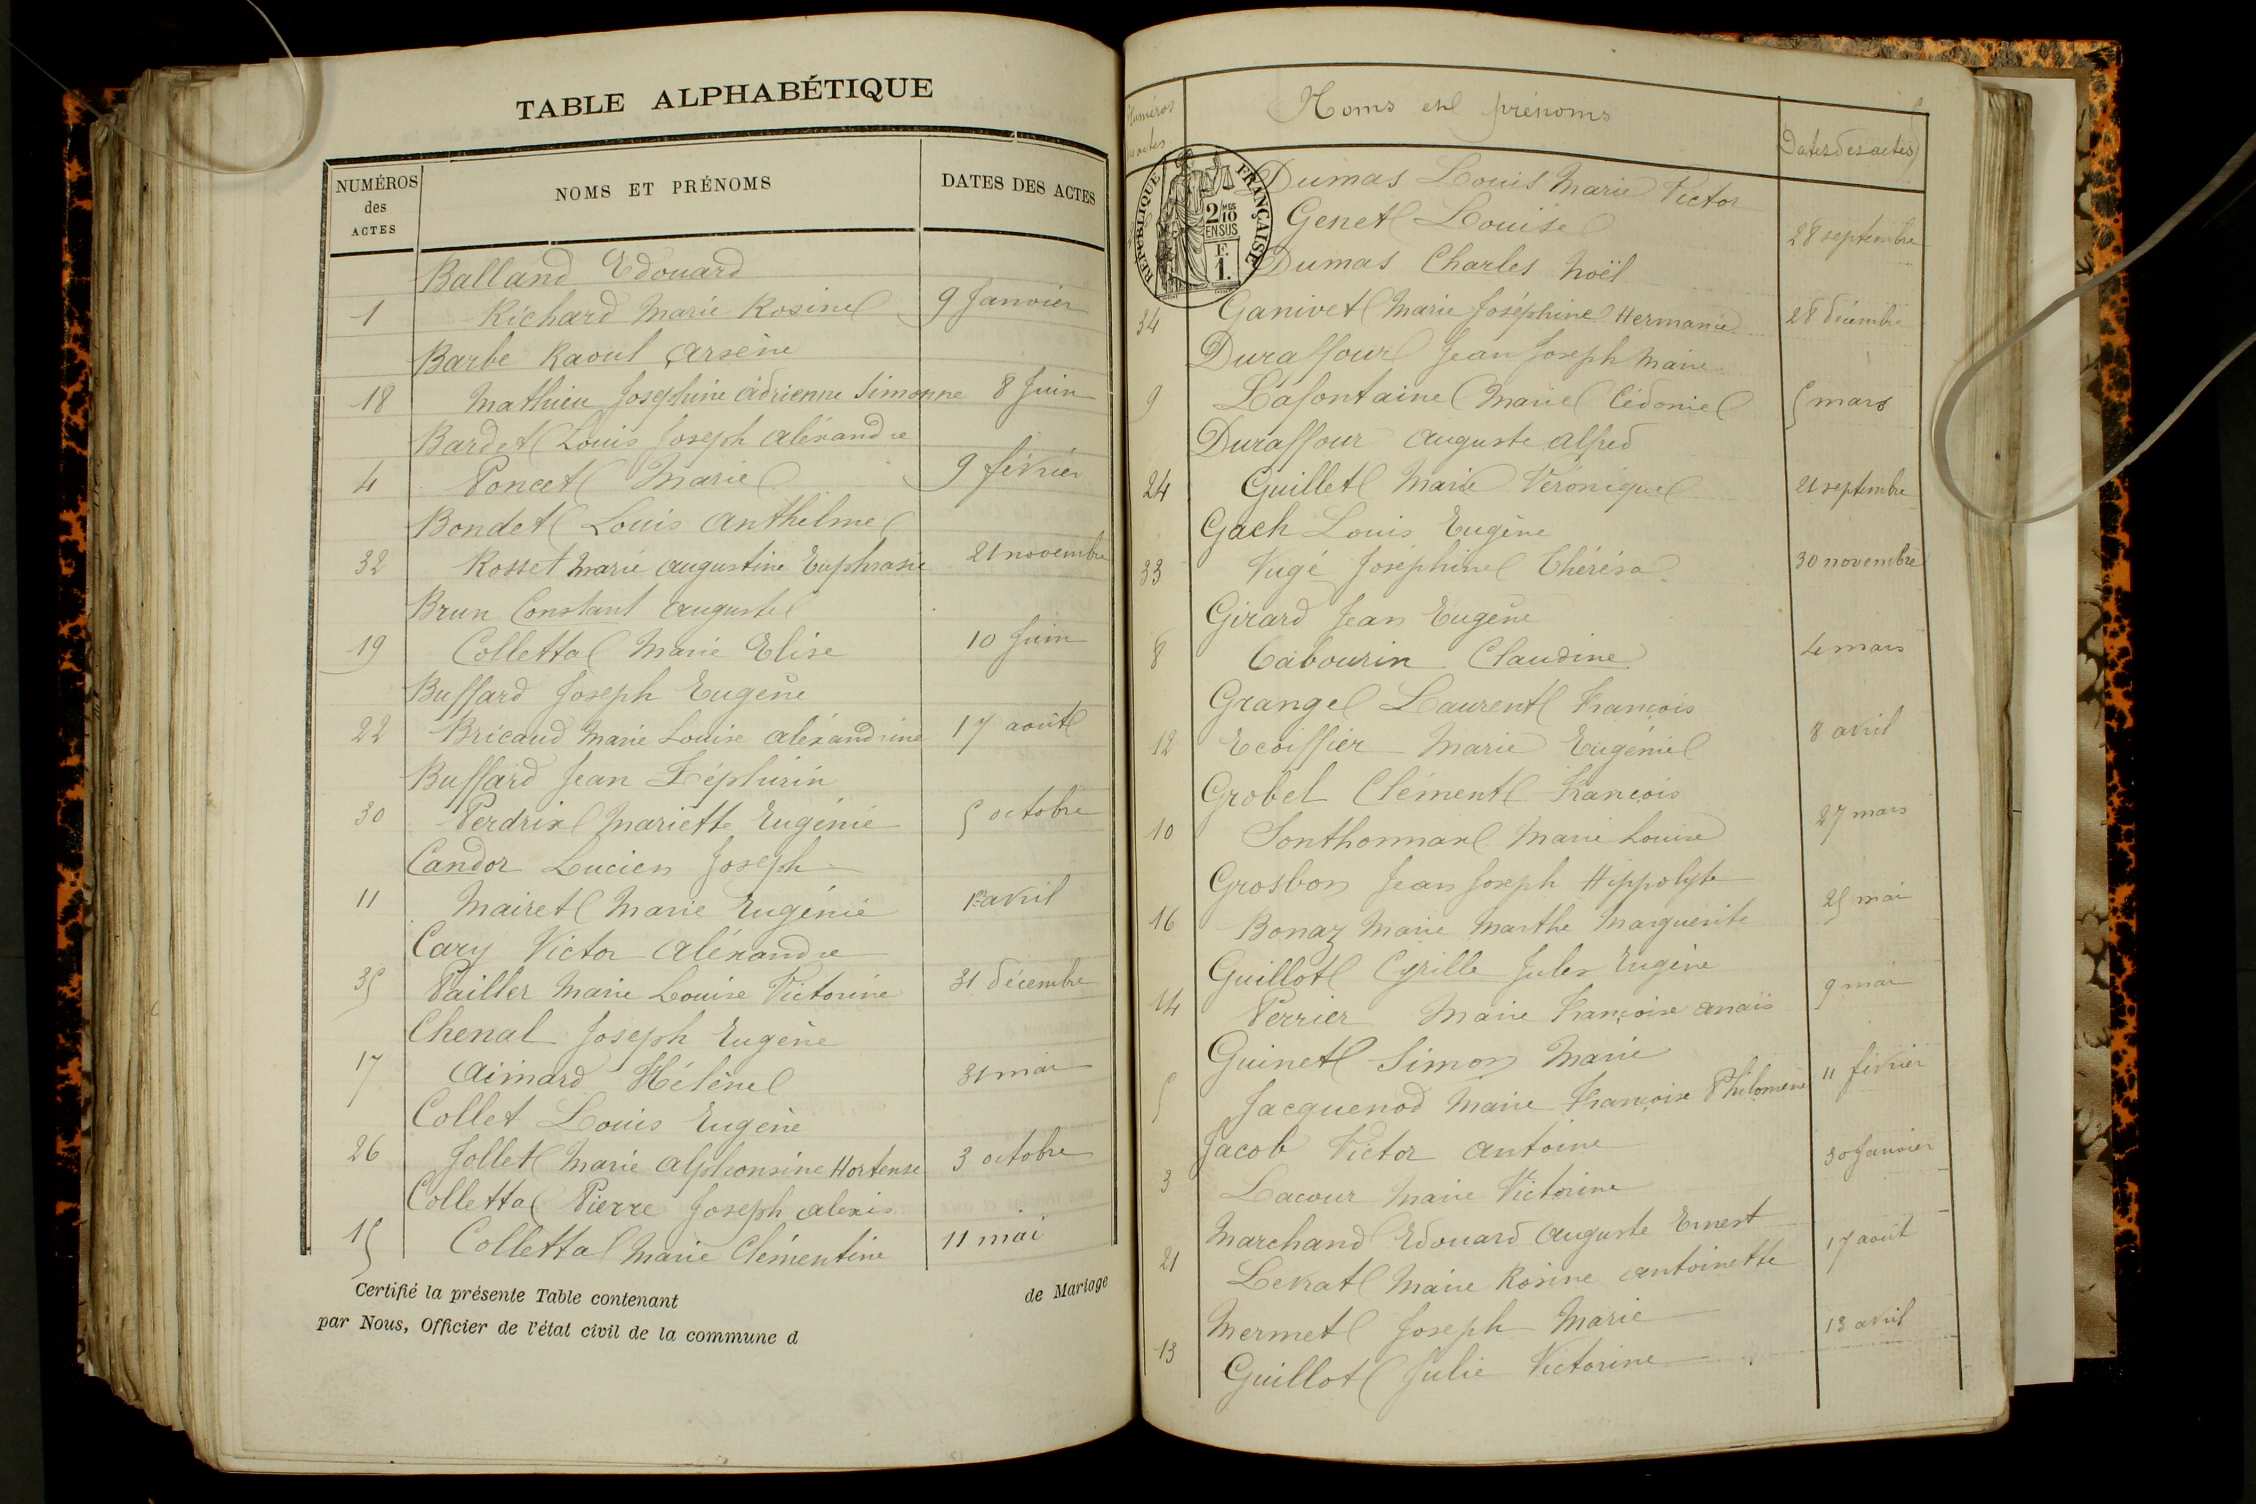 TABLE ALPHABÉTIQUE
NUMÉROS des ACTES NOMS ET PRÉNOMS DATES DES ACTES
Balland Edouard
1 Richard Marie Rosine 9 Janvier
Barbe Raoul Arsène
18 Mathieu Joséphine Adrienne Simonne 8 Juin
Bardet Louis Joseph Aléxandre
4 Poncet Marie 9 février
Bondet Louis Anthelme
32 Rosset Marie Augustine Euphrasie 21 novembre
Brun Constant Auguste
19 Colletta Marie Elise 10 Juin
Buffard Joseph Eugène
22 Bricaud Marie Louise Aléxandrine 17 août
Buffard Jean Zéphirin
30 Perdrix Mariette Eugénie 5 octobre
Candor Lucien Joseph
11 Mairet Marie Eugénie 1er avril
Cary Victor Aléxandre
35 Pailler Marie Louise Victorine 31 décembre
Chenal Joseph Eugène
17 Aimard Hélène 31 mai
Collet Louis Eugène
26 Jollet Marie Alphonsine Hortense 3 octobre
Colletta Pierre Joseph Alexis
15 Colletta Marie Clémentine 11 mai
Certifié la présente Table contenant de Mariage
par Nous, Officier de l'état civil de la commune d
Numéros des actes Noms et prénoms Dates des actes
RÉPUBLIQUE FRANÇAISE
2/10 MES EN SUS
F. 1.
Dumas Louis Marie Victor
Genet Louise 28 septembre
Dumas Charles Noël
34 Ganivet Marie Joséphine Hermanie 28 décembre
Duraffour Jean Joseph Marie
9 Lafontaine Marie Cédonie 5 mars
Duraffour Auguste Alfred
24 Guillet Marie Véronique 21 septembre
Gach Louis Eugène
33 Vugé Joséphine Thérésa 30 novembre
Girard Jean Eugène
8 Cabourin Claudine 4 mars
Grange Laurent François
12 Ecoiffier Marie Eugénie 8 avril
Grobel Clément François
10 Sonthonnax Marie Louise 27 mars
Grosbon Jean Joseph Hippolyte
16 Bonaz Marie Marthe Marguerite 25 mai
Guillot Cyrille Jules Eugène
14 Perrier Marie Françoise Anaïs 9 mai
Guinet Simon Marie
5 Jacquenod Marie Françoise Philomène 11 février
Jacob Victor Antoine
3 Lacour Marie Victorine 30 Janvier
Marchand Edouard Auguste Ernest
21 Levrat Marie Rosine Antoinette 17 août
Mermet Joseph Marie
13 Guillot Julie Victorine 13 avril